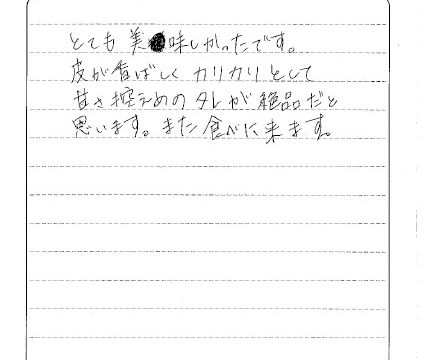 とても美味しかったです。
皮が香ばしくカリカリとして
甘さ控えめのタレが絶品だと
思います。また食べに来ます。